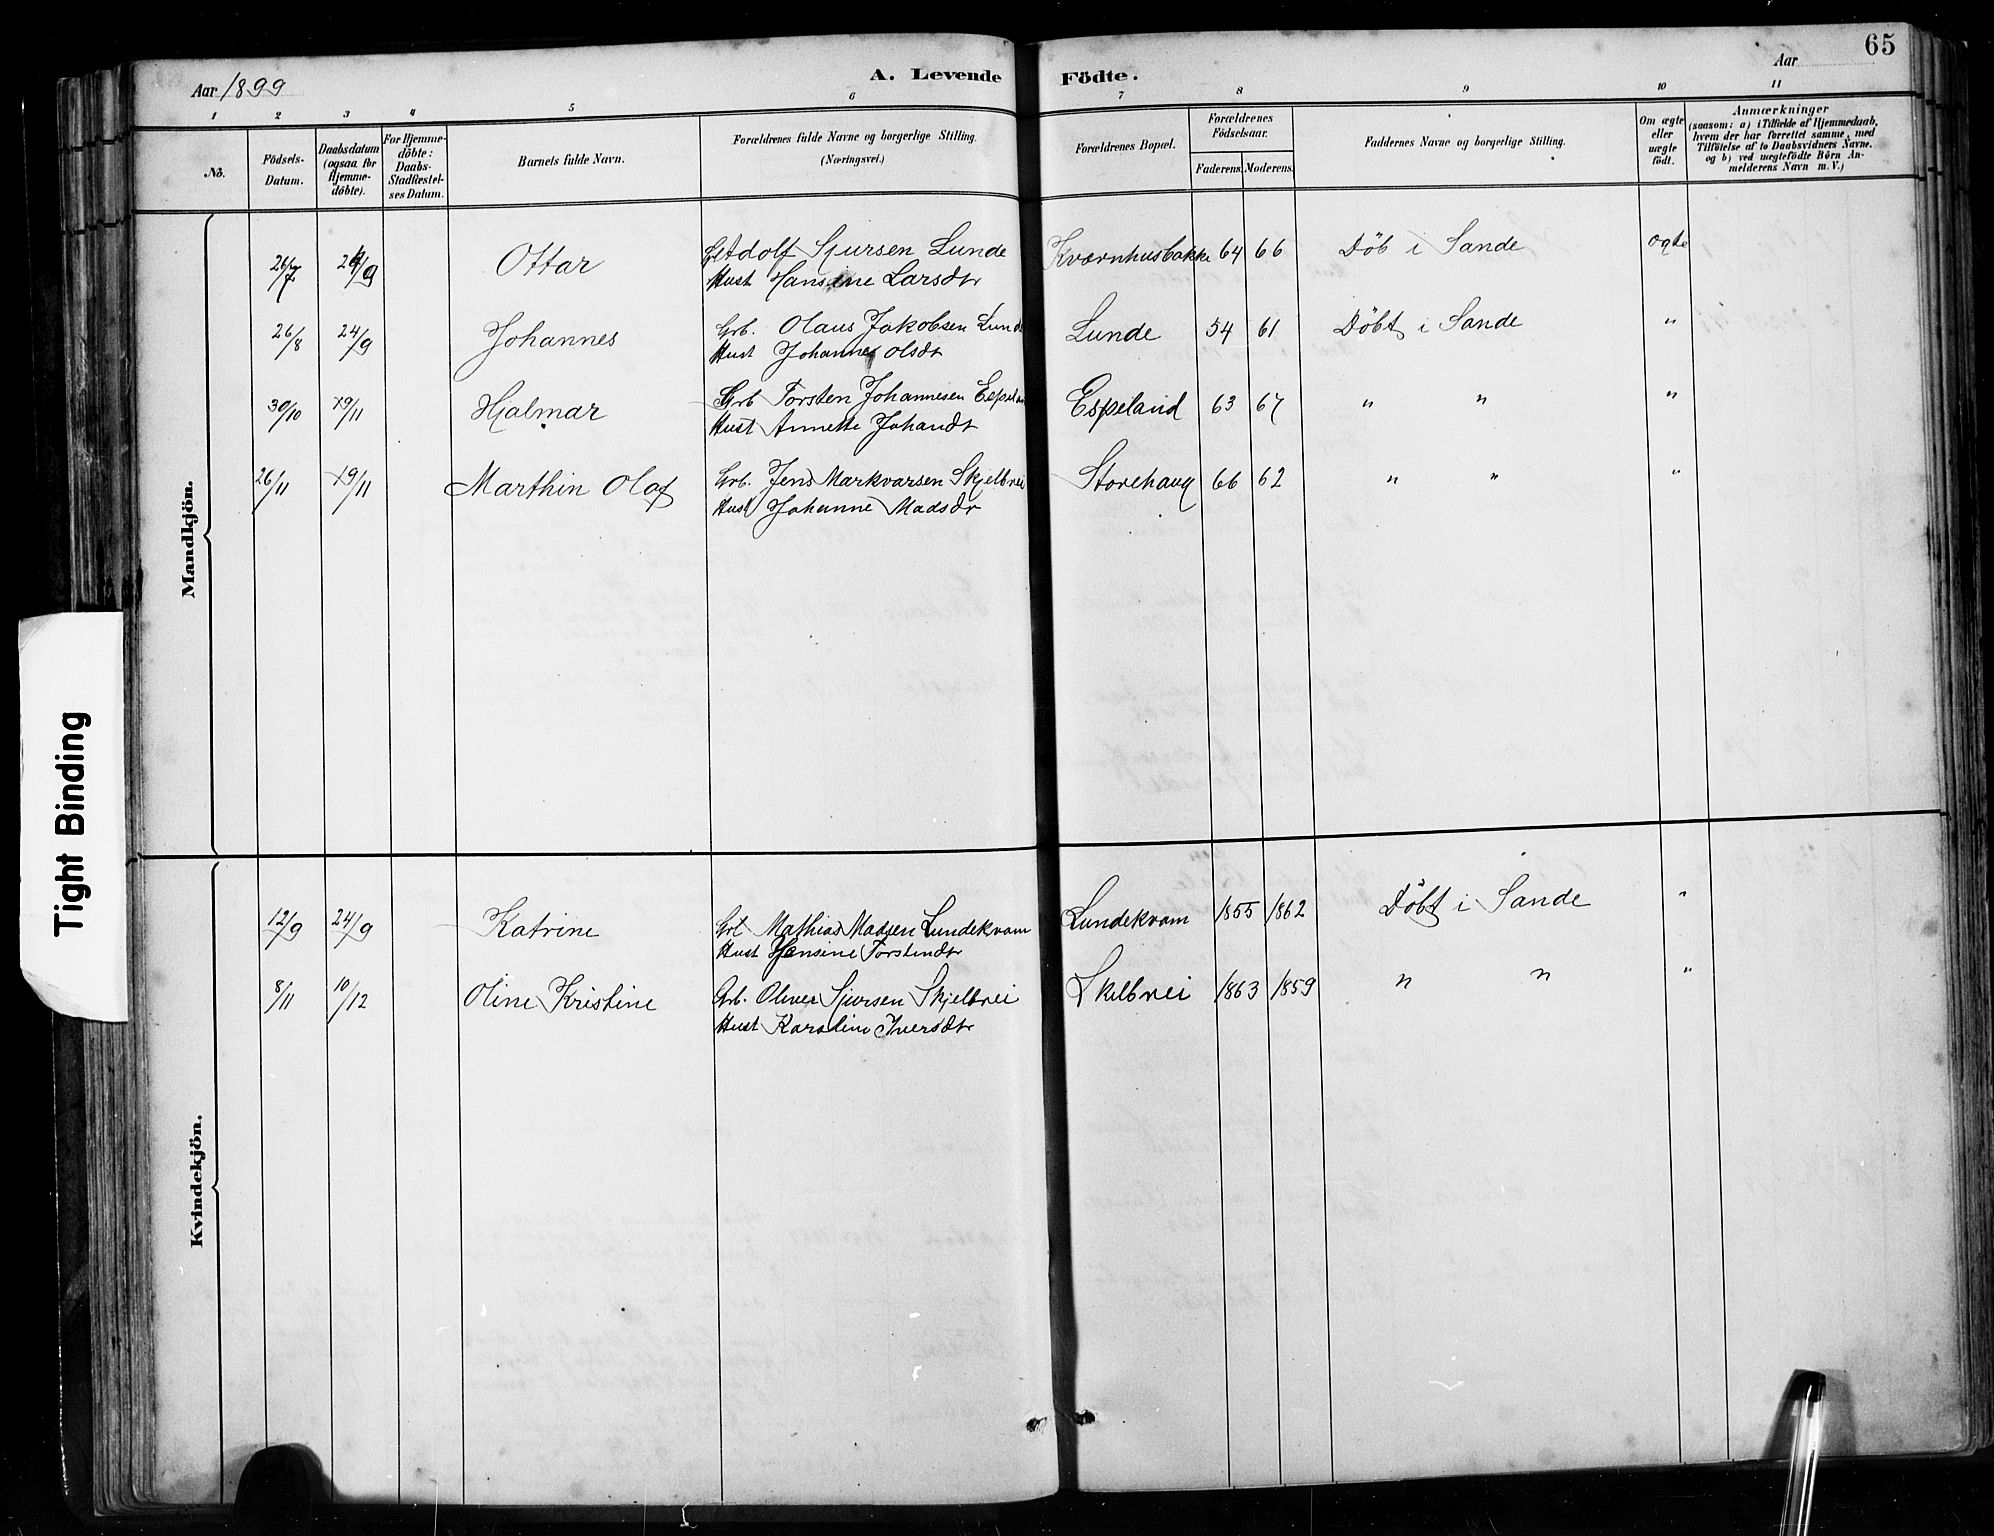 65
Aar 1899
A. Levende Födte.
Aar
1 2 3 4 5 6 7 8 9 10 11
No.
Födsels-Datum.
Daabsdatum (ogsaa for Hjemme-döbte).
For Hjemme-döbte: Daabs-Stadfæstel-ses Datum.
Barnets fulde Navn.
Forældrenes fulde Navne og borgerlige Stilling.
(Næringsvei.)
Forældrenes Bopæl.
Forældrenes Födselsaar.
Faderens. Moderens.
Faddernes Navne og borgerlige Stilling.
Om ægte eller uægte födt.
Anmærkninger
(saasom: a) i Tilfælde af Hjemmedaab, hvem der har forrettet samme, med Tilföielse af to Daabsvidners Navne. og b) ved uægtefödte Börn Anmelderens Navn m. V.)
Mandkjön.
26/7 24/9 Ottar Adolf Sjursen Lunde Kværnhusbakke 64 66 Döb i Sande ægte
Hust Hansine Larsdtr
26/8 24/9 Johannes Grb. Olaus Jakobsen Lunde Lunde 54 61 Döbt i Sande "
Hust Johanne Olsdtr
30/10 19/11 Hjalmar Grb Torsten Johannesen Espeland 63 67 " " "
Hust Annette Johandtr
26/11 19/11 Marthin Olaf Grb. Jens Markvarsen Skjelbrei Storehaug 66 62 " " "
Hust Johanne Madsdr
Kvindekjön.
12/9 24/9 Katrine Grb Mathias Madsen Lundekvam Lundekvam 1855 1862 Döbt i Sande "
Hust Hansine Torstendtr
8/11 10/12 Oline Kristine Grb. Oliver Sjursen Skjelbrei Skelbrei 1863 1859 " " "
Hust Karoline Iversdtr
Tight Binding